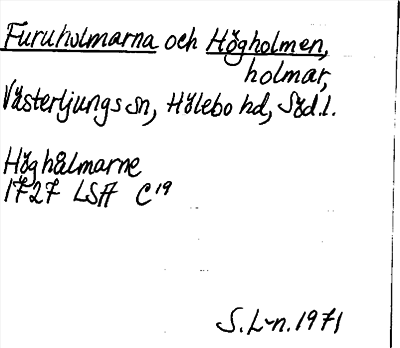 Furuholmarna och Högholmen,
holmar,
Västerljungs sn, Hölebo hd, Söd.l.
Höghålmarne
1727 LSA C19
S.L-n.1971